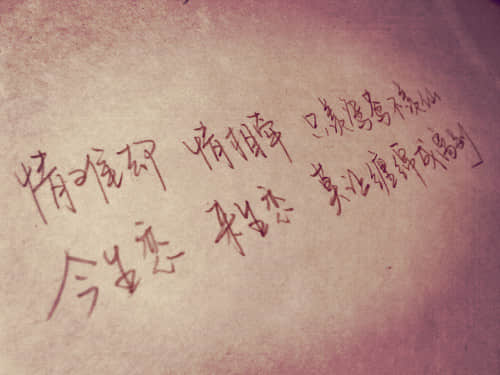 情难却 情相牵 只羡鸳鸯不羡仙
今生恋 来生恋 莫让缠绵成离别